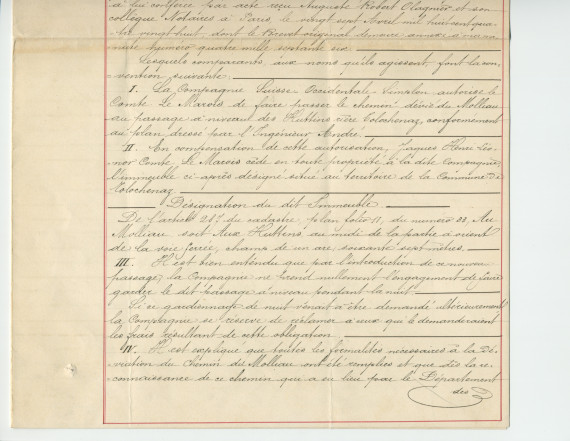 a lui conféré par acte reçu Auguste Robert Olagnier et son
collègue Notaires à Paris, le vingt sept Avril mil huit cent qua-
tre vingt huit, dont le Brevet original demeure annexé à ma mi-
nute numéro quatre mille septante six.
Lesquels comparants aux noms qu'ils agissent, font la con-
vention suivante:
I. La Compagnie Suisse Occidentale Simplon autorise le
Comte Le Marois de faire passer le chemin dévié du Molliau
au passage à niveau des Huttins rière Tolochenaz, conformément
au plan dressé par l'Ingénieur André.
II. En compensation de cette autorisation, Jaques Henri Léo-
nor Comte Le Marois cède en toute propriété à la dite Compagnie
l'immeuble ci-après désigné situé au territoire de la Commune de
Tolochenaz
Désignation du dit Immeuble.
De l'article 217 du cadastre, plan folio 11, du numéro 22, Au
Molliau soit Aux Huttins au midi de la partie à orient
de la voie ferrée, champ de un are, soixante sept mètres.
III. Il est bien entendu que par l'introduction de ce nouveau
passage, la Compagnie ne prend nullement l'engagement de faire
garder le dit passage à niveau pendant la nuit.
Si ce gardiennage de nuit venait à être demandé ultérieurement
la Compagnie se réserve de réclamer à ceux qui le demanderaient
les frais résultant de cette obligation
IV. Il est expliqué que toutes les formalités nécessaires à la Dé-
viation du Chemin du Molliau ont été remplies et que dès la re-
connaissance de ce chemin qui a eu lieu par le Département
des